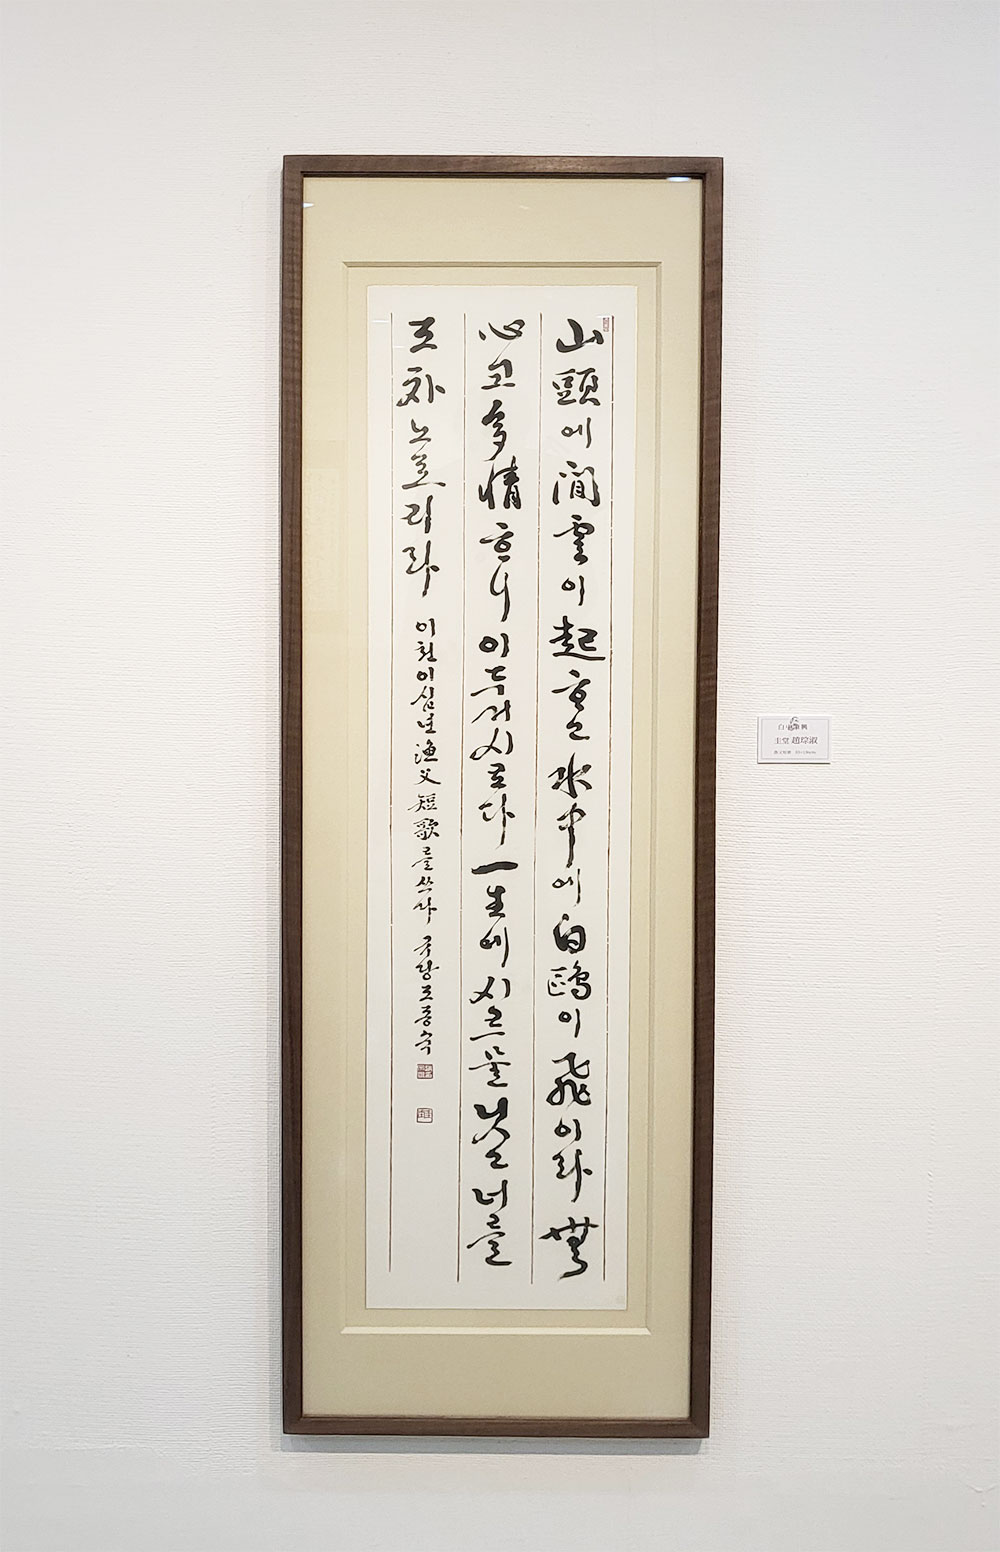 山頭에 閒雲이 起흐고 水中에 白鷗이 飛이라 無
心코 多情흐니 이 두 거시로다 一生에 시르믈 닛고 너를
조차 노로리라 이천이십년 漁父短歌를 쓰다 규당 조종숙
圭堂 趙琮淑